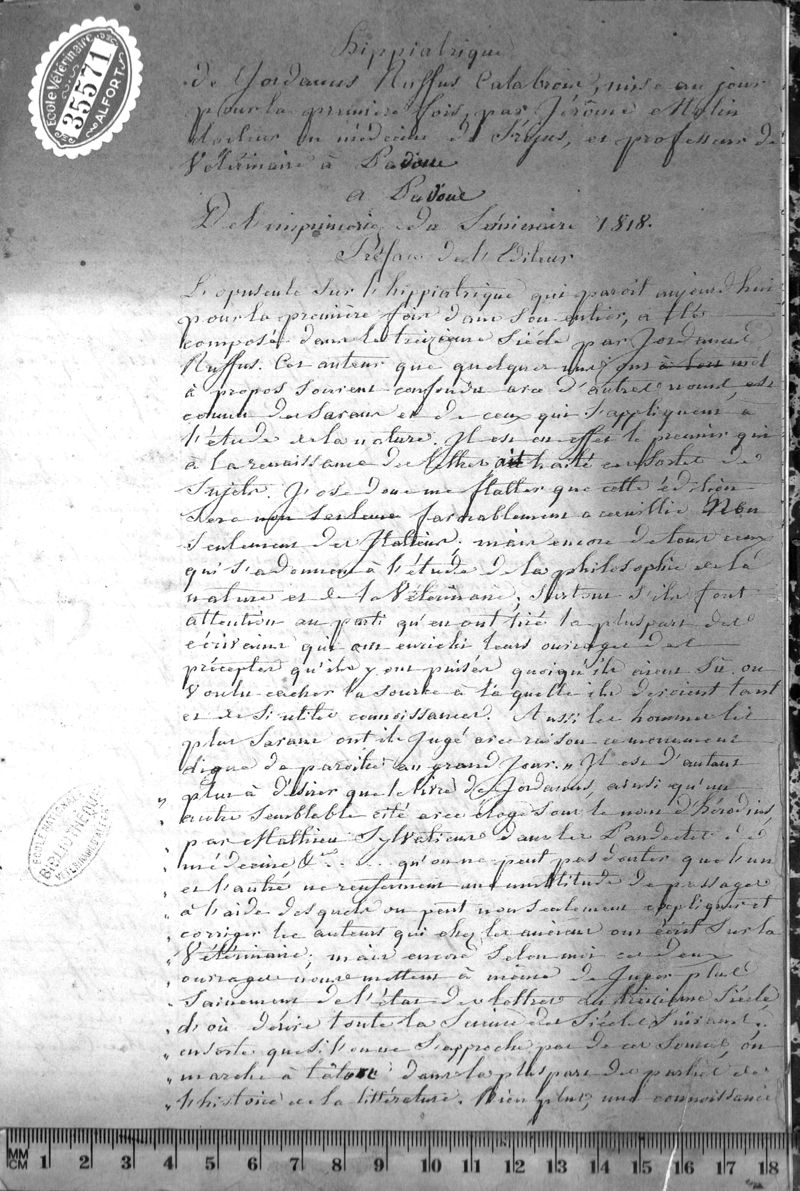 Ecole Vétérinaire
35571
ALFORT
hippiatrique
de Jordanus Ruffus Calabrois, mise au jour
pour la première fois, par Jérôme Molin
docteur en médecine de Fréjus, et professeur de
Vétérinaire à Padoue
a Padoue
De l'imprimerie du Séminaire 1818.
Préface de l'Editeur
L'opuscule sur l'hippiatrique qui paroit aujourd'hui
pour la première fois dans son entier, a été
composé dans le treizième siècle par Jordanus
Ruffus. Cet auteur que quelques uns ont mal
à propos souvent confondu avec d'autres noms, est
connu des savans et de ceux qui s'appliquent à
l'étude de la nature. Il est en effet le premier qui
à la renaissance des lettres, ait traité ces sortes de
sujets. J'ose donc me flatter que cette édition
sera non seulement favorablement accueillie Non
seulement des mais encore de tous ceux
qui s'adonnent à l'étude de la philosophie de la
nature et de la Vétérinaire, surtout s'ils font
attention au parti qu'en ont tiré la pluspart des
écrivains qui ont enrichi leurs ouvrages des
préceptes qu'ils y ont puisés quoiqu'ils aient sû ou
voulu cacher la source à laquelle ils devoient tant
et de si utiles connoissances. Aussi les hommes les
plus savans ont ils jugé avec raison ce monument
digne de paroitre au grand jour. " Il est d'autant
" plus à désirer que le livre de Jordanus, ainsi qu'un
autre semblable cité avec éloge sous le nom d'hérodius
" par Mathieu Sylvaticus dans les Pandectes de
" médecine &c. . . . qu'on ne peut pas douter que l'un
" et l'autre ne renferment une multitude de passages
" à l'aide desquels on peut non seulement expliquer et
" corriger les auteurs qui chez les anciens ont écrit sur la
" Vétérinaire; mais encore selon moi ces deux
" ouvrages nous mettent à même de juger plus
" sainement de l'état des lettres au treizième siècle
" d'où dérive toute la science des siècles suivans;
" ensorte que si l'on ne s'approche pas de ces sources, on
" marche à tâtons dans la pluspart des parties de
" l'histoire de la littérature. Bien plus, une connoissance
ECOLE NATIONALE
BIBLIOTHÈQUE
MM
CM 1 2 3 4 5 6 7 8 9 10 11 12 13 14 15 16 17 18